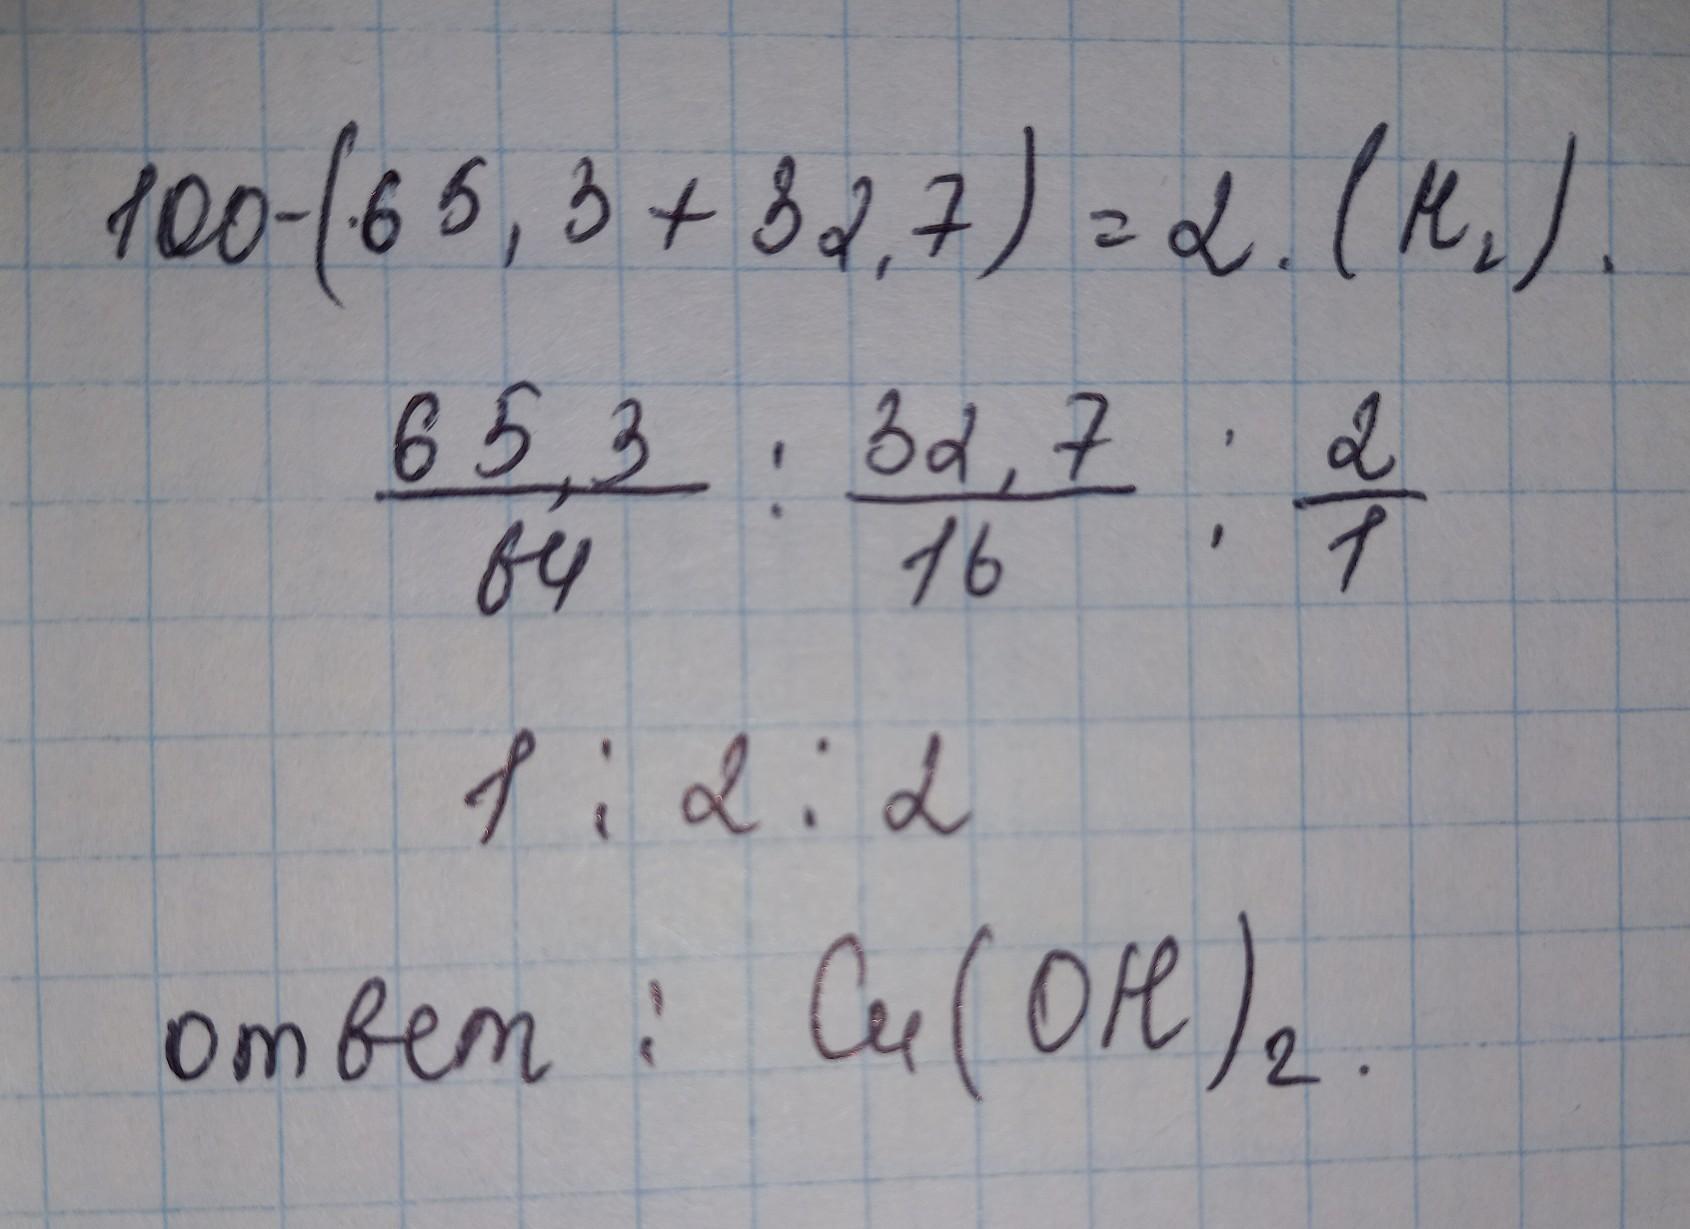 100-(65,3+32,7)=2.(H₂).
65,3/64 : 32,7/16 : 2/1
1:2:2
ответ: Cu(OH)₂.